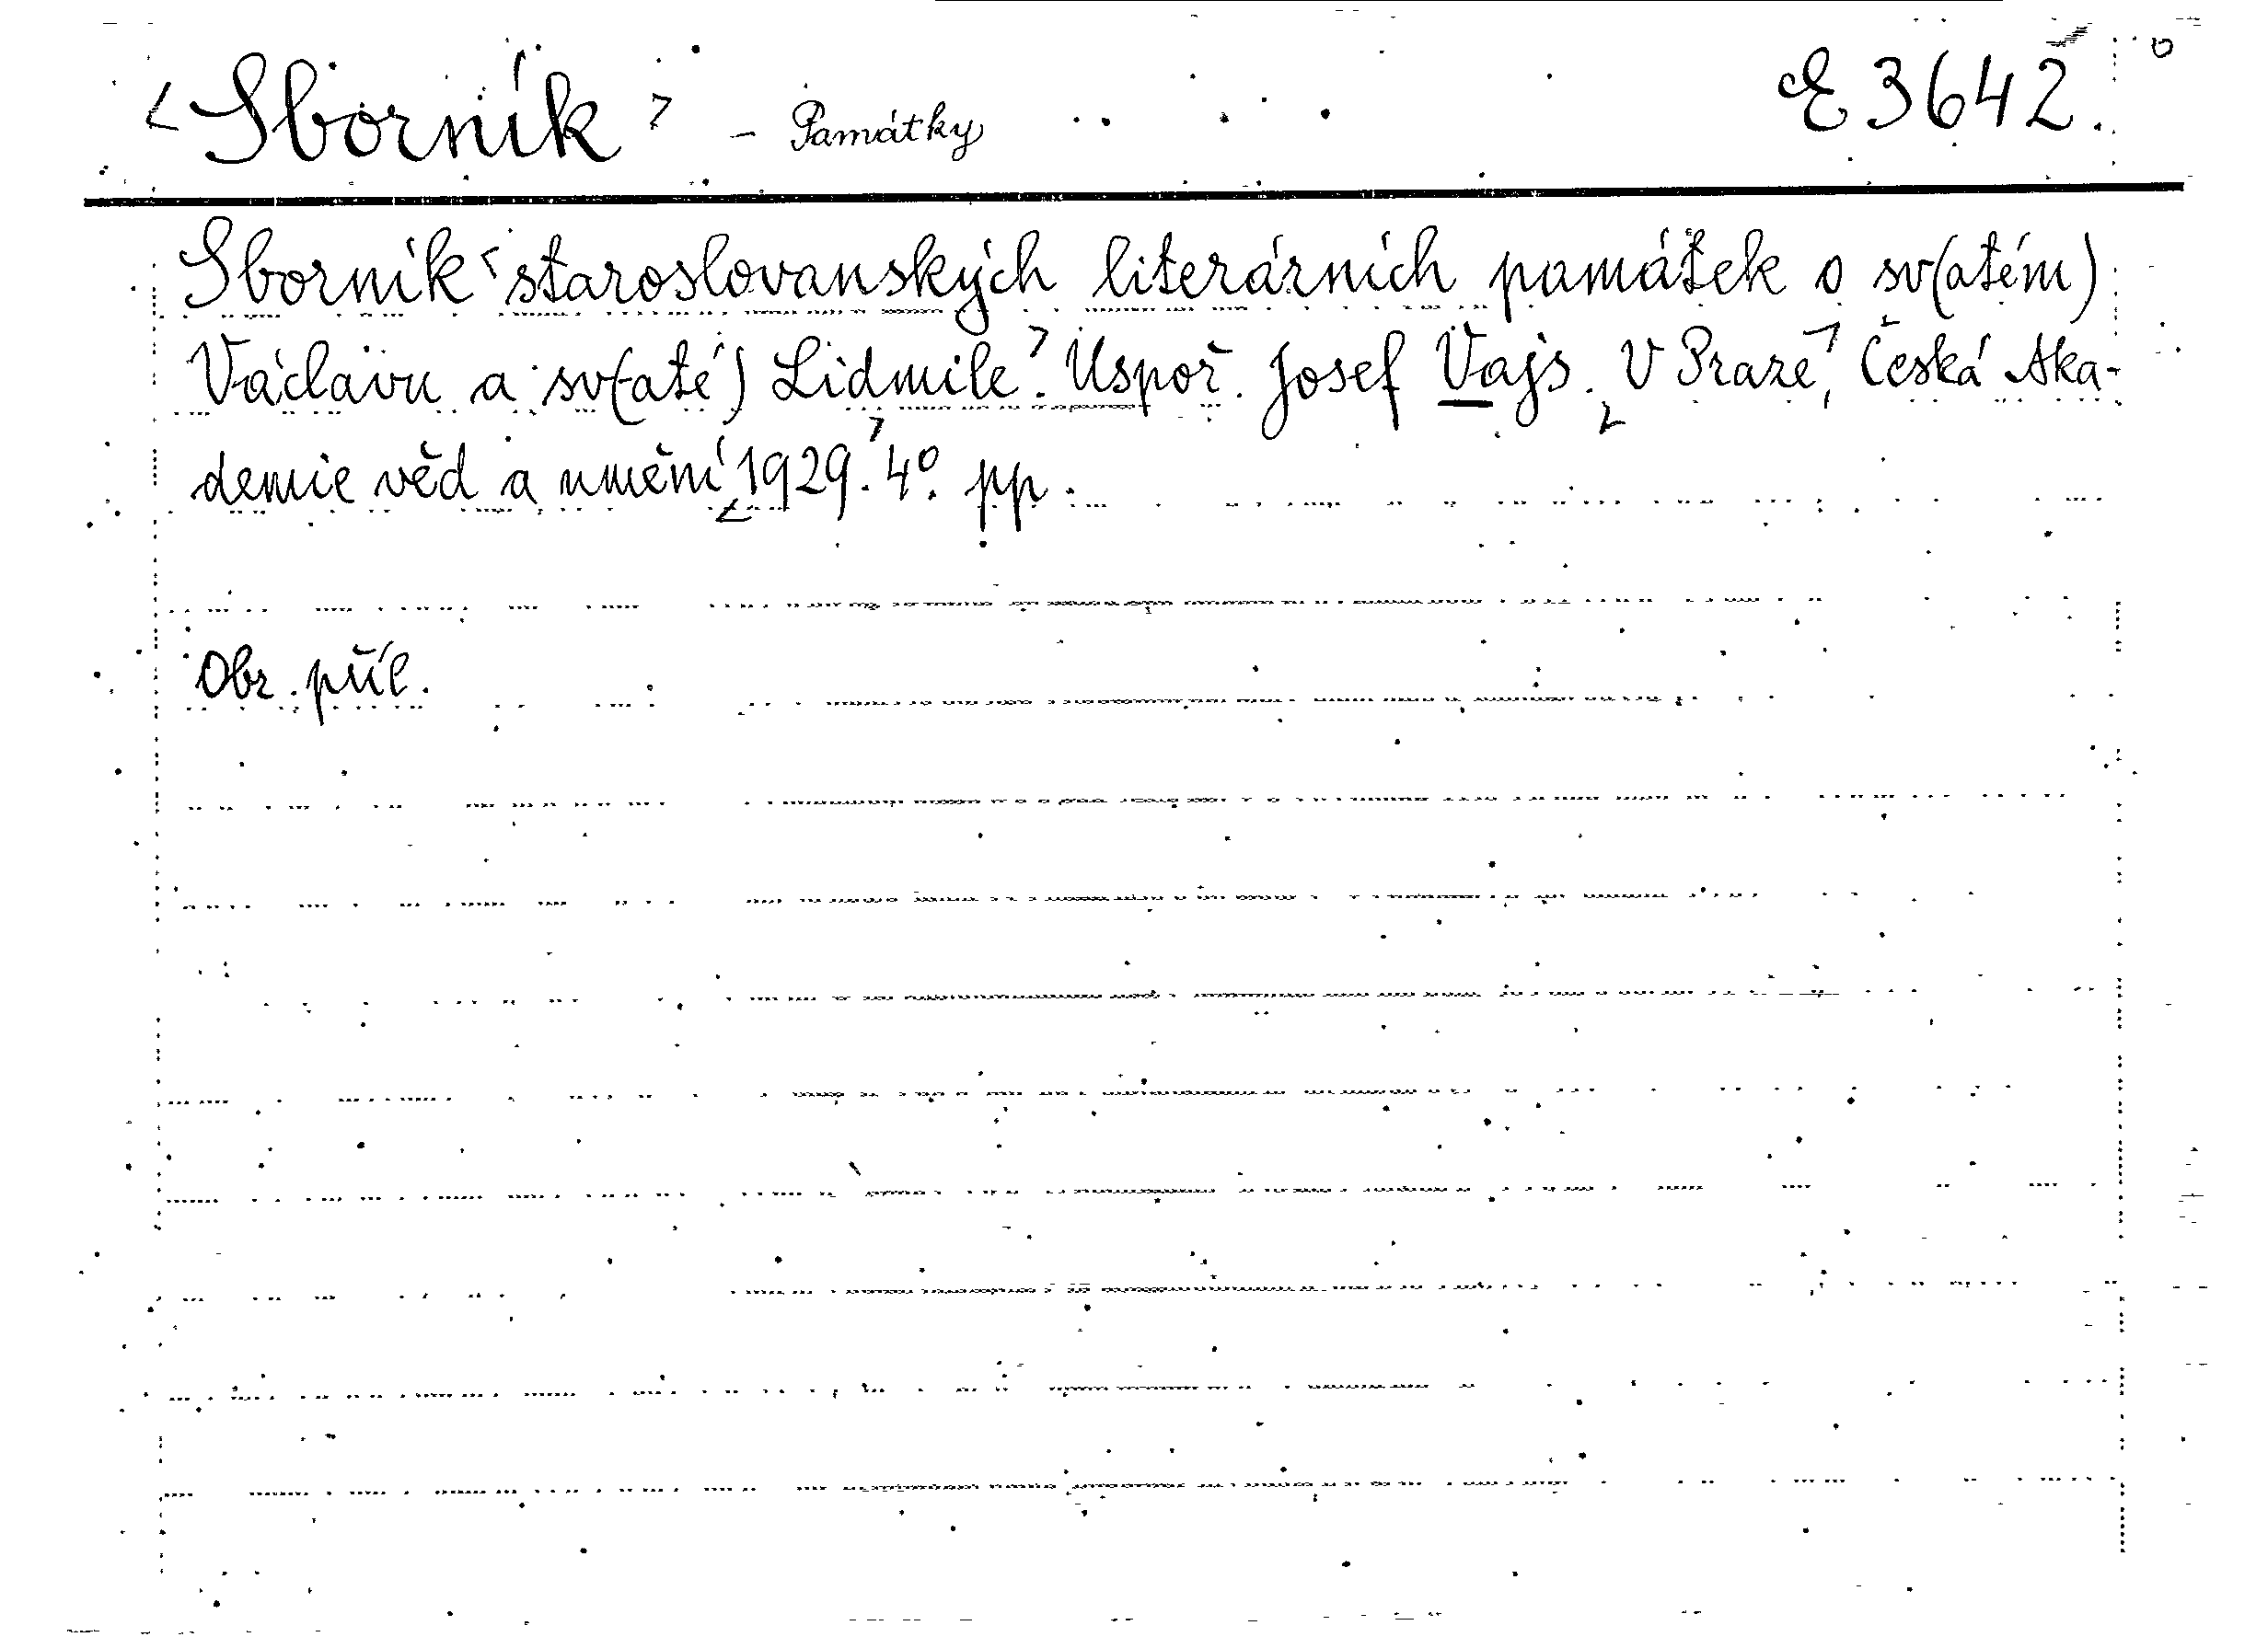 <Sborník> - Památky E 3642.
Sborník staroslovanských literárních památek o sv(atém)
Václavu a sv(até) Lidmile. Uspoř. Josef Vajs. V Praze, Česká Aka-
demie věd a umění 1929. 4°. pp.
Obr. příl.